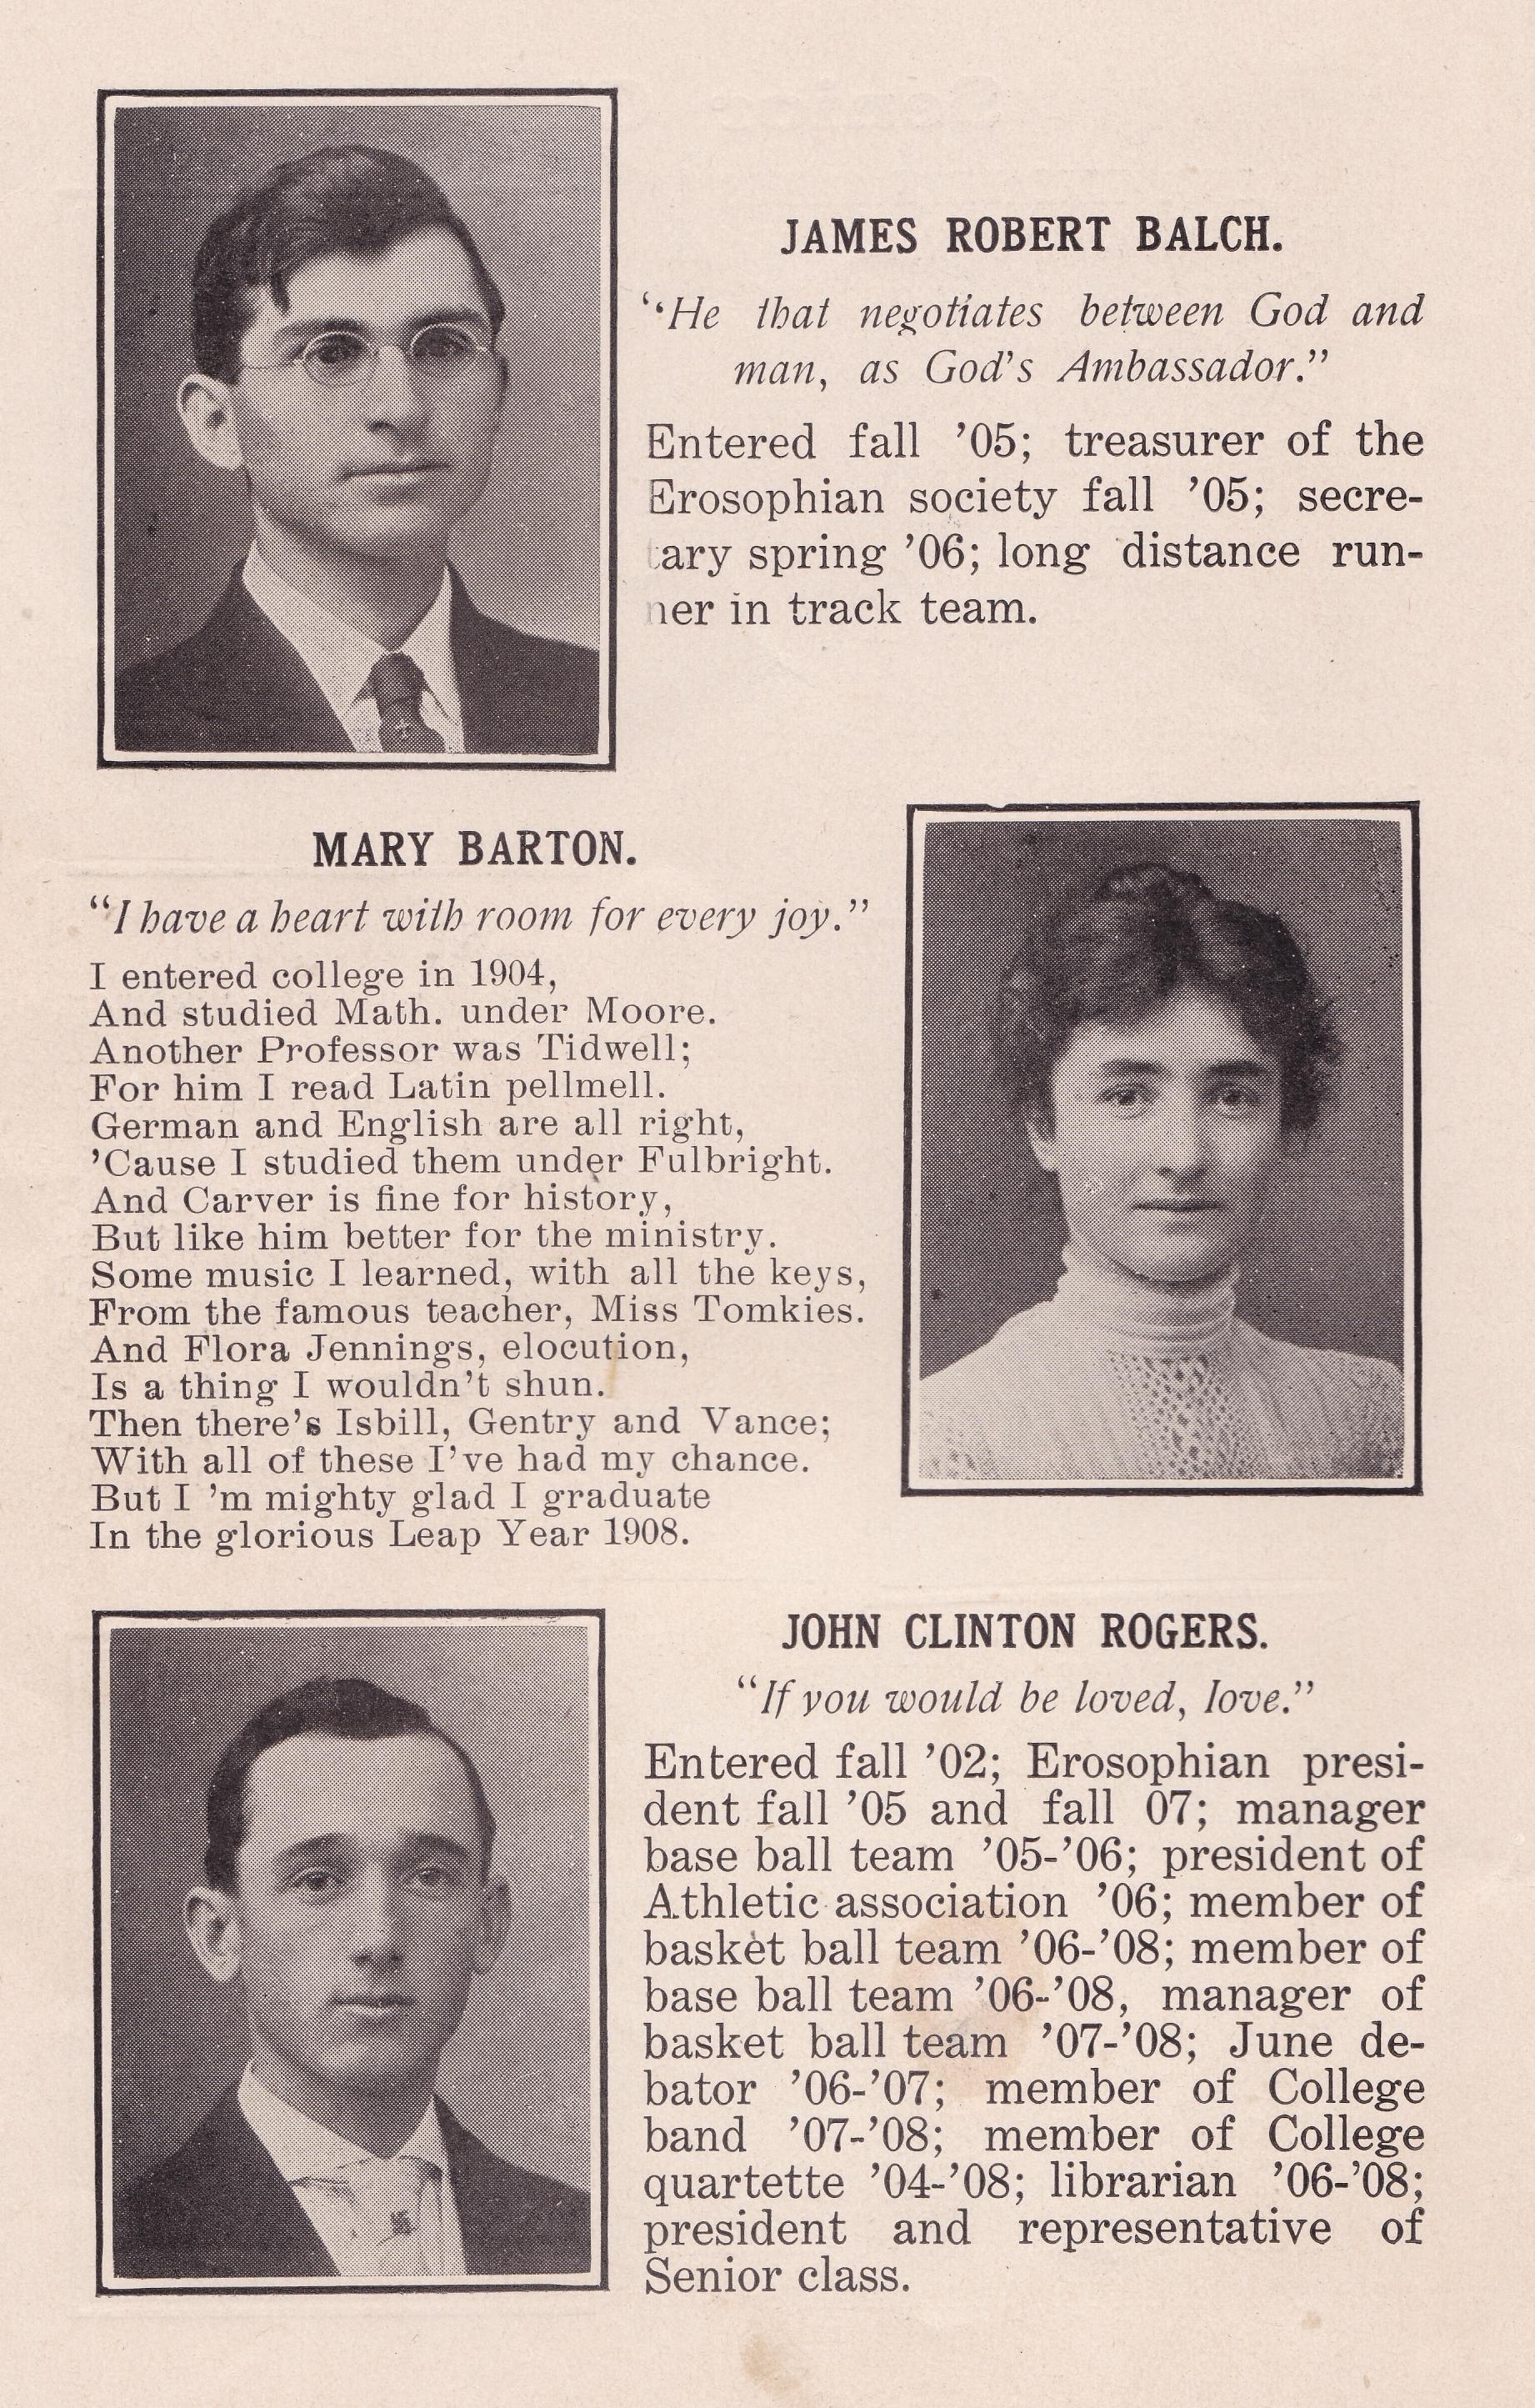 JAMES ROBERT BALCH.
"He that negotiates between God and
man, as God's Ambassador."
Entered fall '05; treasurer of the
Erosophian society fall '05; secre-
tary spring '06; long distance run-
ner in track team.
MARY BARTON.
"I have a heart with room for every joy."
I entered college in 1904,
And studied Math. under Moore.
Another Professor was Tidwell;
For him I read Latin pellmell.
German and English are all right,
'Cause I studied them under Fulbright.
And Carver is fine for history,
But like him better for the ministry.
Some music I learned, with all the keys,
From the famous teacher, Miss Tomkies.
And Flora Jennings, elocution,
Is a thing I wouldn't shun.
Then there's Isbill, Gentry and Vance;
With all of these I've had my chance.
But I 'm mighty glad I graduate
In the glorious Leap Year 1908.
JOHN CLINTON ROGERS.
"If you would be loved, love."
Entered fall '02; Erosophian presi-
dent fall '05 and fall 07; manager
base ball team '05-'06; president of
Athletic association '06; member of
basket ball team '06-'08; member of
base ball team '06-'08, manager of
basket ball team '07-'08; June de-
bator '06-'07; member of College
band '07-'08; member of College
quartette '04-'08; librarian '06-'08;
president and representative of
Senior class.